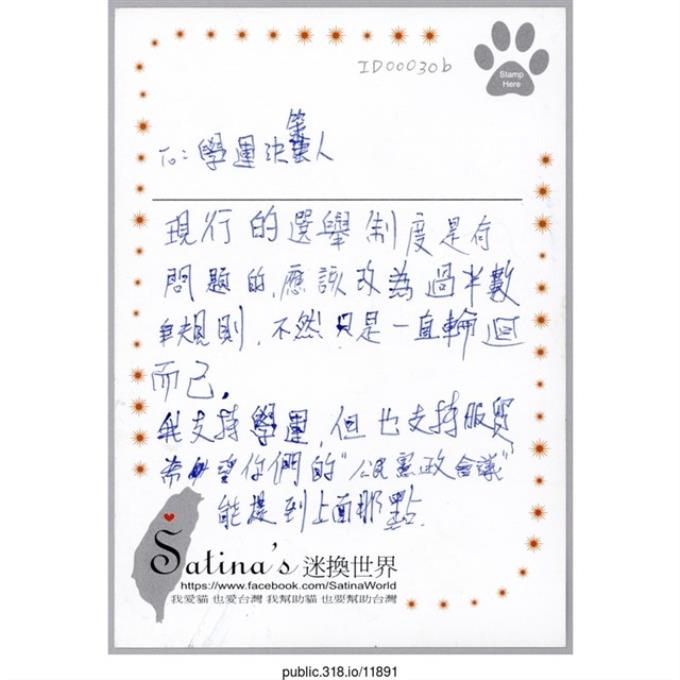 ID00030b
Stamp
Here
To: 學運決策人
現行的選舉制度是有
問題的,應該改為過半數
規則,不然只是一直輪迴
而已.
我支持學運,但也支持服貿
希望你們的"公民憲政會議"
能提到上面那點.
Satina's 迷換世界
https://www.facebook.com/SatinaWorld
我愛貓 也愛台灣 我幫助貓 也要幫助台灣
public.318.io/11891